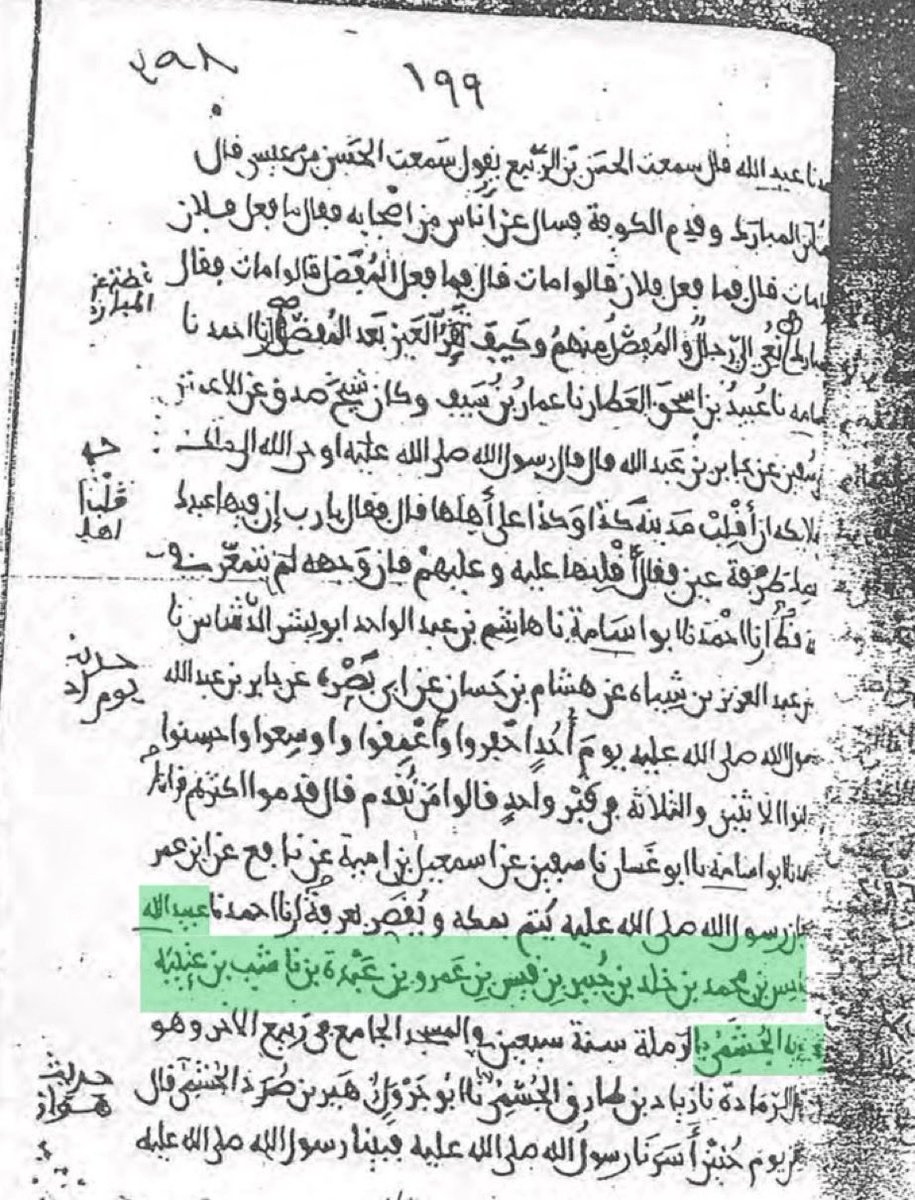 ١٩٩
نا عبد الله قال سمعت الحسن بن الربيع يقول سمعت الحسن بن عيسى قال
المبارك وقدم الكوفة فسال عن اناس من اصحابه فقال ما فعل فلان
مات قال فما فعل فلان قالوا مات قال فما فعل المفضل قالوا مات فقال
نعي الي رجال والمفضل منهم وكيف تقر العين بعد المفضل انا احمد نا
نا عبيد بن اسحق العطار نا عمار بن سيف وكان شيخ صدق عن الاعمش
سفين عن جابر بن عبد الله قال قال رسول الله صلى الله عليه اوحى الله الى ملك
ملائكه ان اقلب مدينة كذا وكذا على أهلها قال فقال يا رب إن فيها عبدك
طرفة عين فقال أقلبها عليه وعليهم فان وجهه لم يتمعر في
قط انا احمد نا ابو اسامة نا هاشم بن عبد الواحد ابو بشر نا
بن عبد العزيز بن شباه عن هشام بن حسان عن ابي نضرة عن جابر بن عبد الله
رسول الله صلى الله عليه يوم أحد احفروا وأعمقوا واوسعوا واحسنوا
الاثنين والثلاثة في قبر واحد قالوا من نقدم قال قدموا اكثرهم قرانا
نا ابو اسامة نا ابو غسان نا سفين عن اسمعيل بن امية عن نافع عن ابن عمر
ان رسول الله صلى الله عليه يتم بمكه ويقصر بعرفة انا احمد نا عبيد الله
بن محمد بن خلد بن جبير بن قيس بن عمرو بن عبدة بن ناشب بن
الجشمي بالرملة سنة سبعين في المسجد الجامع في ربيع الاخر وهو
الرمادة نا زياد بن طارق الجشمي نا ابو جرول زهير بن صرد الجشمي قال
يوم حنين أسرنا رسول الله صلى الله عليه فبينا رسول الله صلى الله عليه
المبارك
قلبها
اهلها
حديث
يوم احد
حديث
هوازن